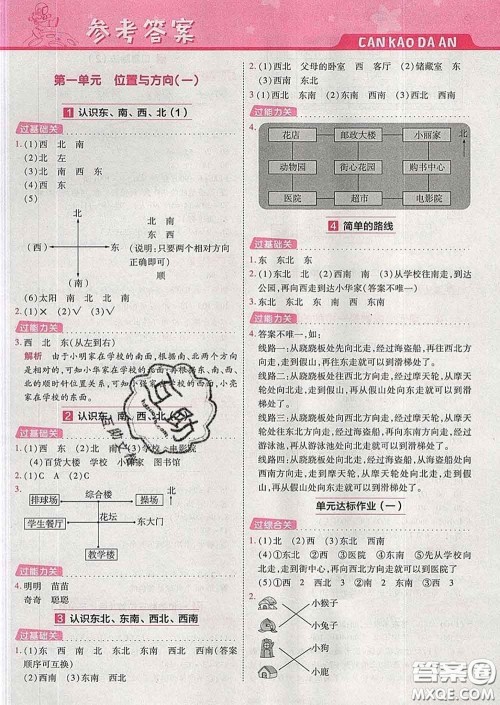 参考答案
CANKAODAAN
第一单元 位置与方向(一)
1 认识东、南、西、北(1)
过基础关
1.(1)西 北 南
(2)北 左
(3)北 南 西 东
(4)西 东 南
(5)
北
南 北
东 西
(西) 东 (说明:只要两个相对方向
正确即可)
(南)
(6)太阳 南 北 北 南
2.(1)× (2)√ (3)√
过能力关
3.西 北 东(从左到右)
解析 由于小明家在学校的南面,根据南、北两个方向
是相对的,可知小华家在学校的北面;再根据东、南、西、
北的顺时针位置关系,可知小张家在学校的西面,小亮
家在学校的东面。
2 认识东、南、西、北
过基础关
1.(1)西 西 北 东 南 (3)学校 电影院
(4)百货大楼 学校 小林家 图书馆
2.(1)C A (2)C
3.
综合楼 北
排球场 操场
花坛
学生餐厅 东大门
教学楼
过能力关
4.明明 苗苗
奇奇 聪聪
3 认识东北、东南、西北、西南
过基础关
1.(1)东 西 南 北 东北 东南 西北 西南(答案
顺序可互换)
(2)西南 东南 (3)西北 东北
2.(1)西北 父母的卧室 西 客厅 (2)储藏室 东
3.(1)东北 西南 (2)东南 西北
过能力关
4.
花店 邮政大楼 小丽家 北
动物园 街心花园 购书中心
医院 超市 电影院
4 简单的路线
过基础关
1.东 东北 东
2.(1)东 东北 (2)西南 南 (3)从学校往南走,到达公
园,再向西南走到达小华家(答案不唯一)
3.东北 东南 东 东北 东北 东南
过能力关
4.答案不唯一,如:
线路一:从跷跷板处先向北走,经过海盗船,再往西北方
向走,经过摩天轮,从摩天轮处向西南走,经过假山,再
从假山处向西北走就可以到滑梯处了。
线路二:从跷跷板处向西北走,经过摩天轮,从摩天轮处
向西南走,经过假山,再从假山处向西北走就可以到滑
梯处了。
线路三:从跷跷板处向北走,经过海盗船,从海盗船处向
西北走,经过摩天轮,再从摩天轮处向西北走,经过
游泳池,再从游泳池处向西南走就可以到滑梯处了。
线路四:从跷跷板处向北走,经过海盗船,从海盗船处向
西南走,到达假山处,再从假山向西北走就可以到滑梯
处了。
单元达标作业(一)
过综合关
1.(1)北 西 (2)东 西 (3)东南 西北
(4)①东北 西 ②西 东 南 ③先从学校向
北走,再向西北走就可以到医院了
(5)①东北 ②西南 ③西北 ④东南
2.
小猴子
小兔子
小狗
小鹿
互助
互助文档
答案圈
MXQE.COM